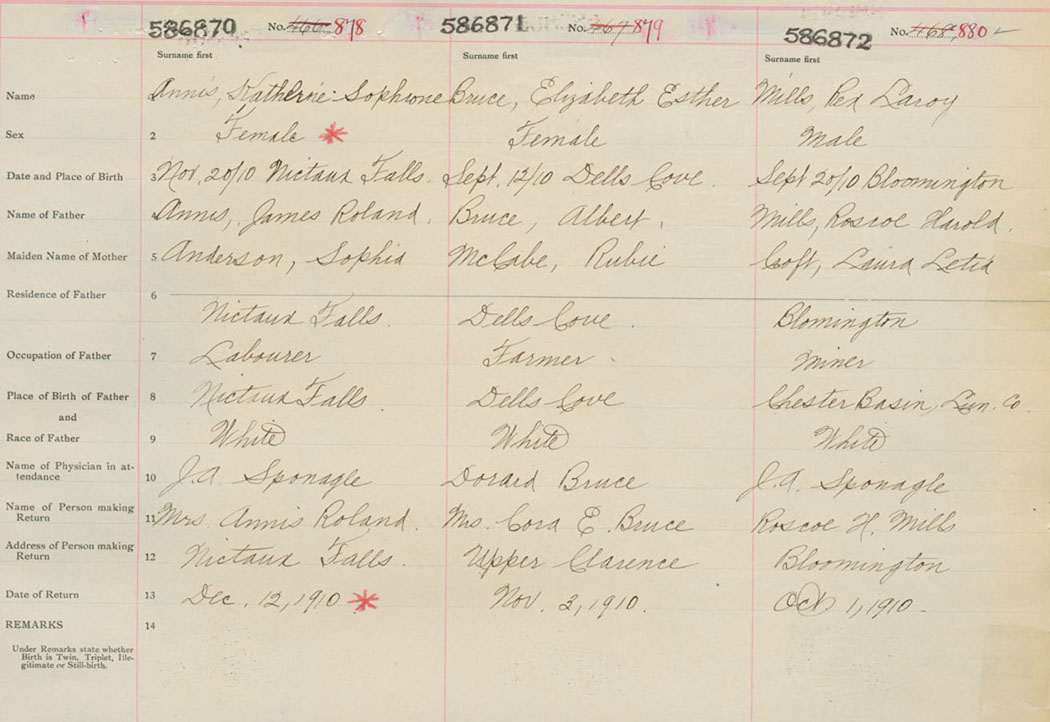 586870 No. 466 878 586871 No. 467 879 586872 No. 468 880
Surname first Surname first Surname first
Name Annis, Katherine Sophrone Bruce, Elizabeth Esther Mills, Rex Laroy
Sex 2 Female * Female Male
Date and Place of Birth 3 Nov. 20/10 Nictaux Falls. Sept. 12/10 Dells Cove. Sept 20/10 Bloomington
Name of Father 4 Annis, James Roland. Bruce, Albert. Mills, Roscoe Harold.
Maiden Name of Mother 5 Anderson, Sophia McCabe, Rubie Croft, Laura Letia
Residence of Father 6
Nictaux Falls. Dells Cove. Blomington
Occupation of Father 7 Labourer Farmer. Miner
Place of Birth of Father 8 Nictaux Falls. Dells Cove Chester Basin, Lun. Co.
and
Race of Father 9 White White White
Name of Physician in at-
tendance 10 J.A. Sponagle Bruce J.A. Sponagle
Name of Person making
Return 11 Mrs. Annis Roland. Mrs. Cora E. Bruce Roscoe H. Mills
Address of Person making
Return 12 Nictaux Falls. Upper Clarence Bloomington
Date of Return 13 Dec. 12, 1910 * Nov. 3, 1910. Oct 1, 1910.
REMARKS 14
Under Remarks state whether
Birth is Twin, Triplet, Ille-
gitimate or Still-birth.